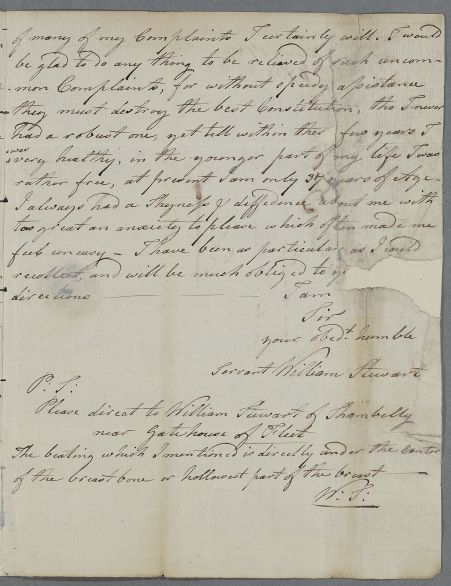 of many of my Complaints I certainly will. I would
be glad to do any thing to be relieved of such uncom=
mon Complaints, for without speedy assistance
they must destroy the best Constitution, tho I never
had a robust one, yet till within thes few years I
was
very healthy, in the younger part of my life I was
rather free, at present I am only 37 years of Age -
I always had a Shyness & diffidence about me with
too great an anxiety to please which often made me
feel uneasy - I have been as particular as I could
recollect, and will be much obliged to yo
directions
I am
Sir
your obedt. humble
Servant William Stewart
P: S:
Please direct to William Stewart of Shambelly
near Gatehouse of Fleet
The beating which I mentioned is directly under the Center
of the breast bone or hollowest part of the breast
W: S: